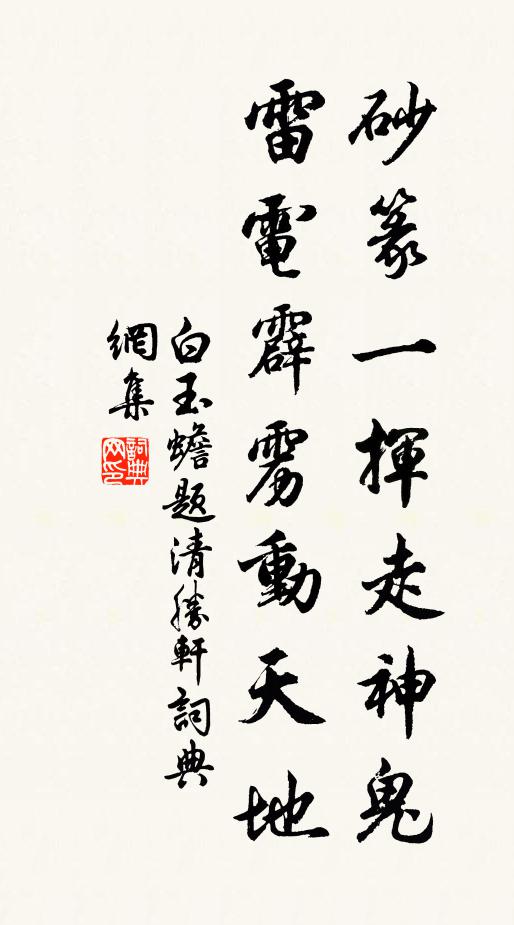 砂篆一揮走神鬼
雷電霹雳動天地
白玉蟾题清勝軒詞典
網集
詞典网印